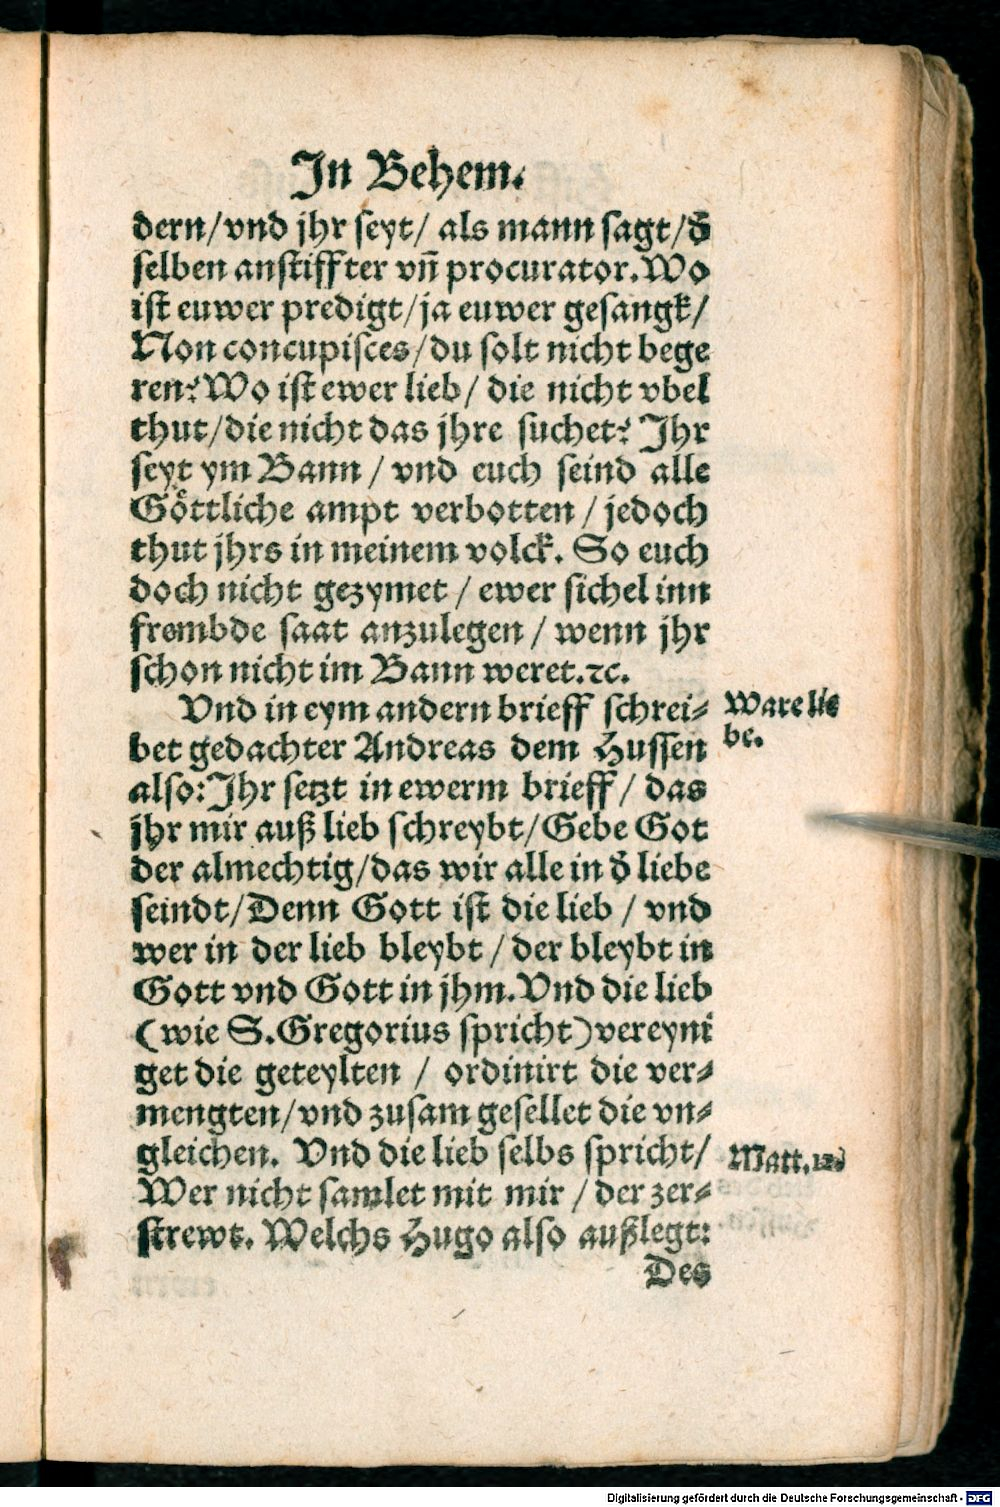 In Behem.
dern/vnd jhr seyt/ als mann sagt/d̄
selben anstiffter vñ procurator.Wo
ist euwer predigt/ja euwer gesangk/
Non concupisces/du solt nicht bege
ren? Wo ist ewer lieb/ die nicht vbel
thut/die nicht das jhre suchet? Jhr
seyt ym Bann / vnd euch seind alle
Goͤttliche ampt verbotten / jedoch
thut jhrs in meinem volck. So euch
doch nicht gezymet / ewer sichel inn
frembde saat anzulegen / wenn jhr
schon nicht im Bann weret.ꝛc.
Vnd in eym andern brieff schrei-
Ware lie
bet gedachter Andreas dem Hussen
be.
also: Jhr setzt in ewerm brieff / das
jhr mir auß lieb schreybt/Gebe Got
der almechtig/das wir alle in d̄ liebe
seindt/Denn Gott ist die lieb / vnd
wer in der lieb bleybt / der bleybt in
Gott vnd Gott in jhm.Vnd die lieb
(wie S.Gregorius spricht)vereyni
get die geteylten / ordinirt die ver-
mengten/vnd zusam gesellet die vn-
gleichen. Vnd die lieb selbs spricht/
Matt.12.
Wer nicht samlet mit mir / der zer-
strewt. Welchs Hugo also außlegt:
Des
Digitalisierung gefördert durch die Deutsche Forschungsgemeinschaft - DFG